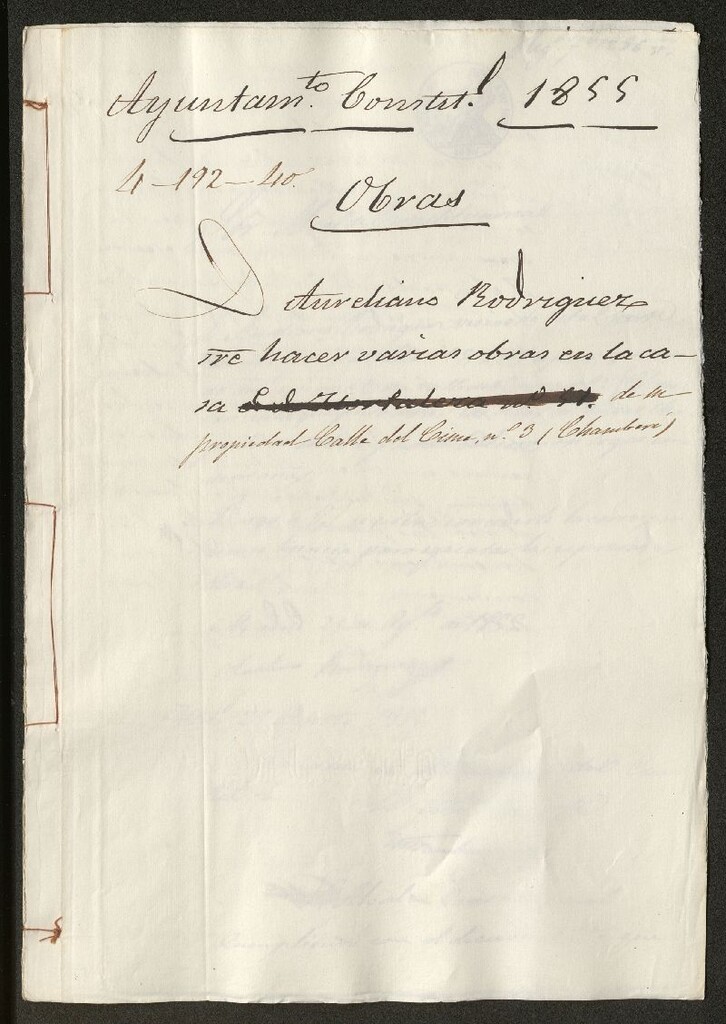 Ayuntam.to Constit.l 1855
4-192-40.
Obras
D Aureliano Rodriguez
sre hacer varias obras en la ca-
sa de su
propiedad Calle del Cisne, nº 3 (Chamberí)